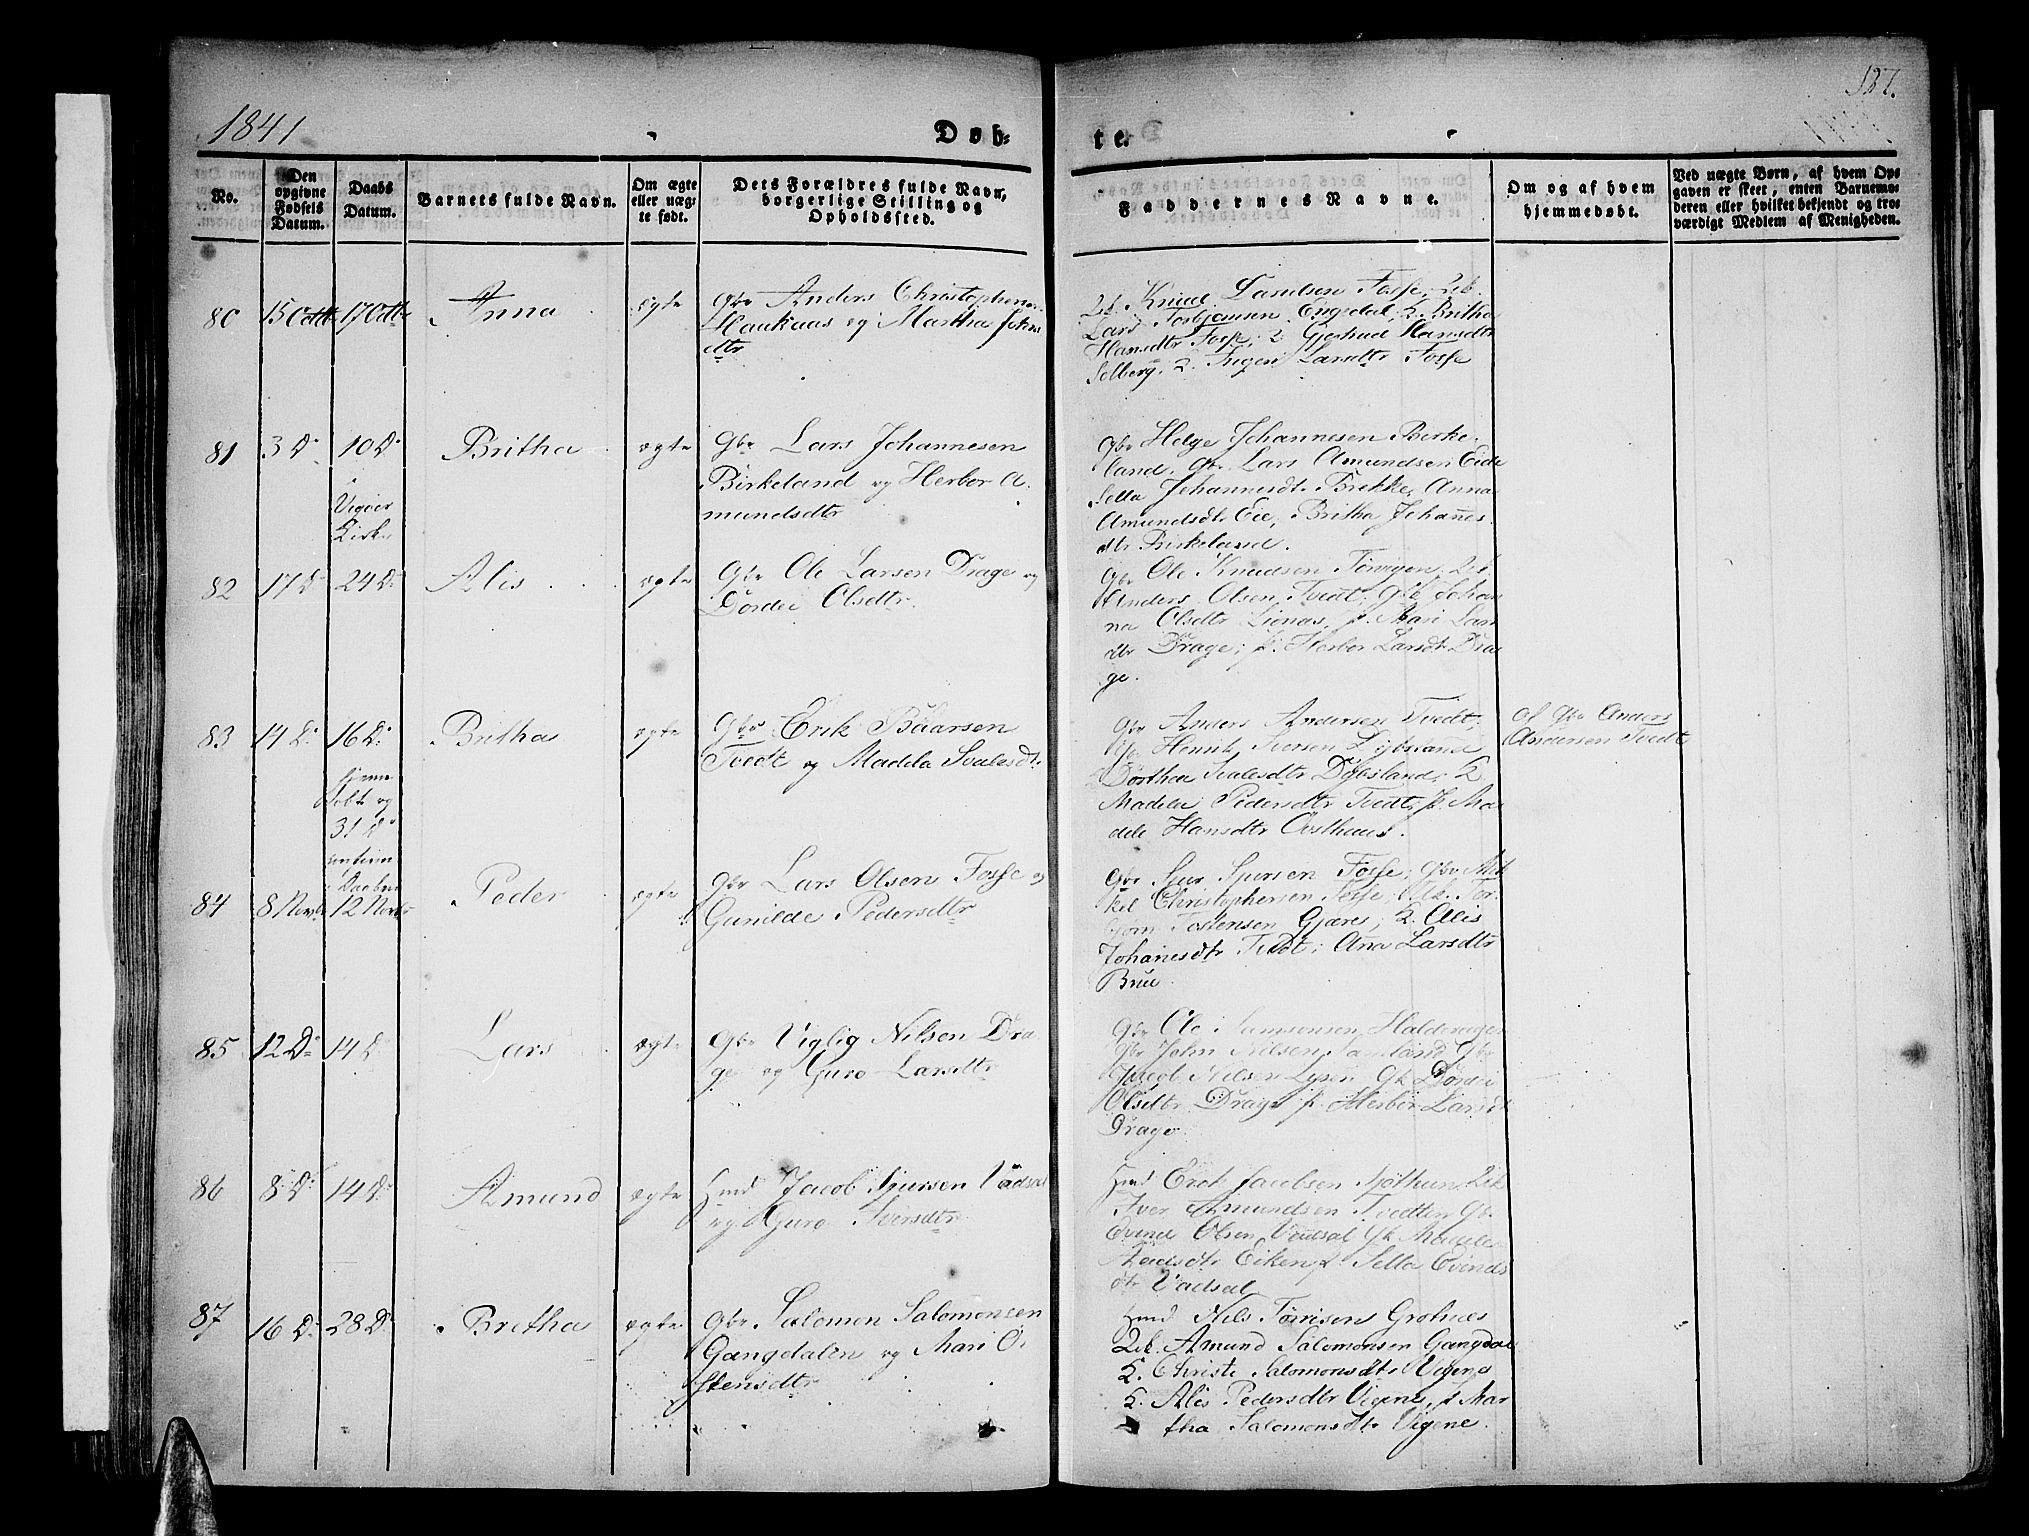 1841
Døb-
te.
127.
No.
Den
opgivne
Fødsels
Datum.
Daabs
Datum.
Barnets fulde Navn.
Om ægte
eller uæg-
te født.
Dets Forældres fulde Navn,
borgerlige Stilling og
Opholdssted.
Faddernes Navne.
Om og af hvem
hjemmedøbt.
Ved uægte Børn, af hvem Op-
gaven er skeet, enten Barnemo-
deren eller hvilket bekjendt og tro-
værdigt Medlem af Menigheden.
80 15 Octbr 17 Octbr Anna ægte Gbr Anders Christophersen
Haukaas og Martha Johns
dtr
Knud Larssen Fosse,
Lars Torbjørnsen Engedal, Britha
Hansdtr Fosse, Gjertrud Hansdtr
Selberg, Larsdtr Fosse
81 3 D. 10 D. Britha ægte Gbr Lars Johannesen
i Vigøer Kirke
Birkeland og Herbor A-
mundsdtr
Gbr Helge Johannesen Birke-
land, Gbr Lars Amundsen Eide
Sella Johannesdt. Brekke, Anna
Amundsdtr Eie, Britha Johañes-
dtr Birkeland.
82 17 D 24 D. Alis ægte Gbr Ole Larsen Drage og
Dordei Olsdtr.
Gbr Ole Knudsen Tørvigen,
Anders Olsen Tvedt, Gbk Johan-
na Olsdtr p. Mari Lars
dtr Drage, p. Herbor Larsdt. Dra-
ge.
83 14 D. 16 D. Britha ægte Gbr Erik Baarsen
hjemme
døbt og
31 D
Tvedt og Madela Ivalesdt.
Gbr Anders Andersen Tvedt,
Gb. Henrik Iversen Dybsland
Dorthea Ivalesdtr Dybsland, K
Madele Pedersdtr Tvedt, p. Ma-
dele Hansdtr Østhuus.
af Gbr Anders
Andersen Tvedt
84 8 Novbr 12 Novbr Peder ægte Gbr Lars Olsen Fosse og
Gunilde Pedersdtr
Gbr Sjur Sjursen Fosse, Gbr Mik-
kel Christophersen Fosse, Tor-
bjørn Tostensen Gjære, K. Alis
Johañesdtr Tvedt, Aña Larsdtr
Brue
85 12 D. 14 D Lars ægte Gbr Viglig Nilsen Dra-
ge og Guro Larsdtr
Gbr Ole Samsonsen Haldorager
Gbr John Nilsen Samland Gbr
Jacob Nilsen Lysen Gk Dordei
Olsdtr Drage p. Herbor Larsdt
Drage
86 8 D. 14 D. Amund ægte Hmd Jacob Sjursen Vadsel
og Guro Iversdtr
Hmd Erik Jacobsen
Iver Amundsen Tvedten Gb.
Evind Olsen Vadsal Gk Madele
Eiken p Sella Evinds
dtr Vadsal
87 16 D. 28 D. Britha ægte Gbr Salomon Salomonsen
Gangdalen og Mari Ø-
stensdtr
Hmd Nils Torrisen Grotnes
Amund Salomonsen Gangdal
K. Christi Salomonsdtr Vigene
K. Alis Pedersdtr Vigene, p Mar-
tha Salomonsdtr Vigene.